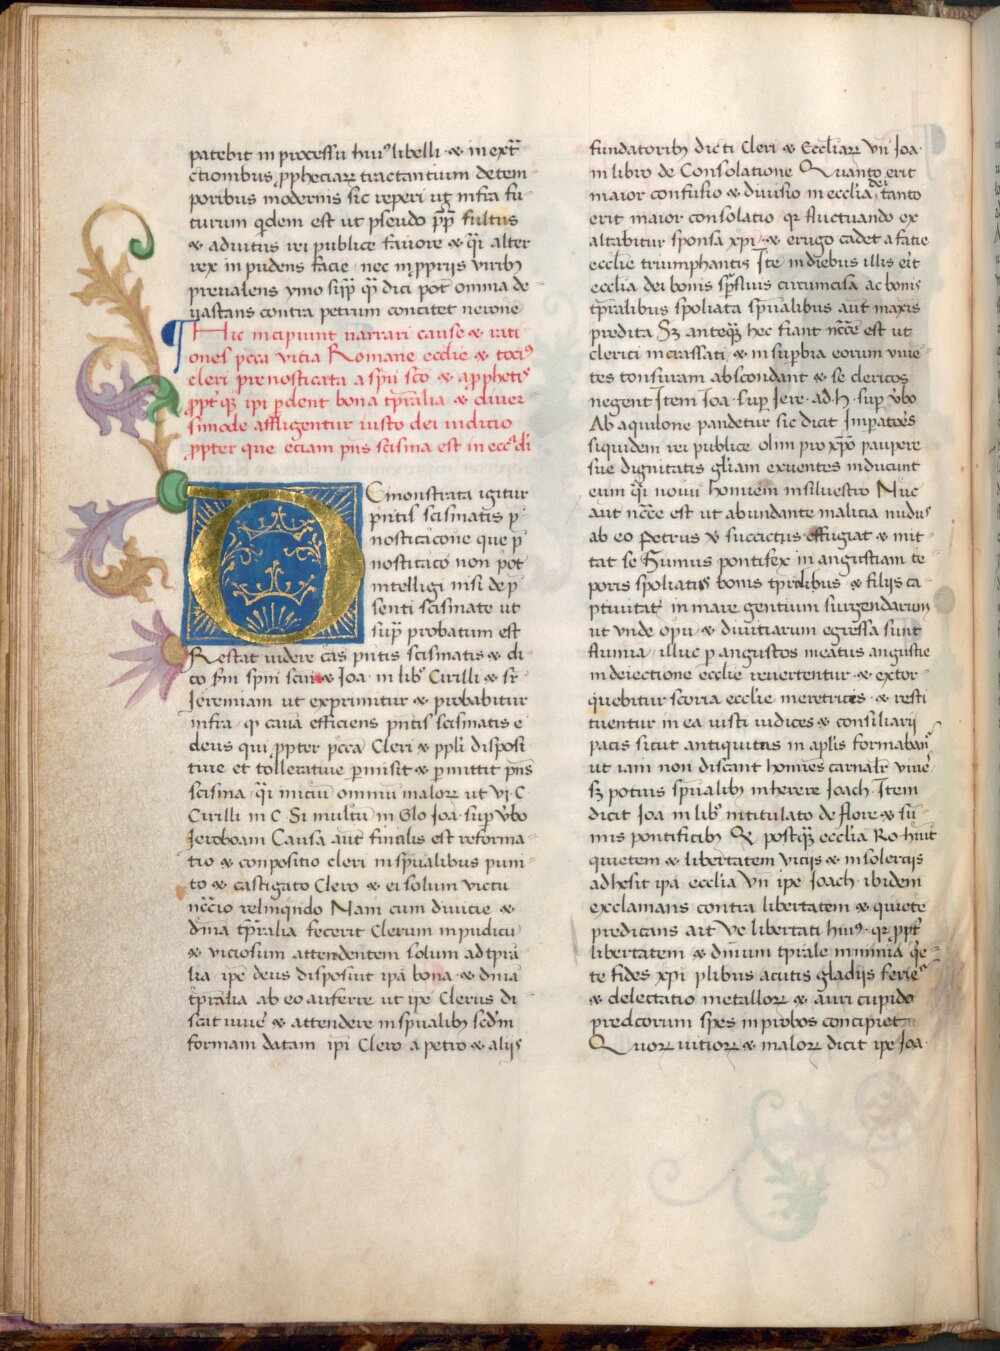 patebit in processu huiꝰ libelli · & in ext̄
ctionibus ꝓpheciaꝝ tractantium de tem
poribus modernis sic reperi ūꝫ infra fu
turum qͥdem est ut pseudo pp̄ fultus
& adiutus rei publice fauore & qͣi alter
rex inpudens facie · nec in ꝓprijs uiribꝫ
preualens ymo suꝑ qͣ dici pōt omnia de
uastans contra petrum concitet nerone
Hic incipiunt narrari cause & rati
ones ꝓ pcc̄a uitia Romane ecclie & totiꝰ
cleri prenosticata a spū scō & a ꝓphetis
ꝓpt̄ qꝫ ipi ꝑdent bona tp̄ralia & diuer
simode affligentur iusto dei iuditio
ꝓpter que eciam pn̄s scisma est in ecc̄ dī
DEmonstrata igitur
pn̄tis scismatis p̄
nosticacōne que p̄
nosticacō non pōt
intelligi nisi de p̄
senti scismate ut
suꝑ probatum est
Restat uidere cās pn̄tis scismatis & di
co sm̄ spm̄ scm̄ & Joa · in libꝰ Cirilli & sr̄
Jeremiam ut exprimitur & probabitur
infra · qͥ cauā efficiens pn̄tis scismatis e
deus qui ꝓpter pcc̄a Cleri & ppl̄i disposi
tiue et tolleratiue ꝑmisit & ꝑmittit pn̄s
scisma · qͣi iniciū omniū maloꝝ ut vj · C
Cirilli in C Si multū in Glo Joa · suꝑ ūbo
Jeroboam Causa aūt finalis est reforma
tio & conpositio cleri in spūalibus puni
to & castigato Clero & ei solum uictu
nc̄c̄io relinqn̄do Nam cum diuicie &
dn̄ia tp̄ralia fecerit Clerum inpudicū
& viciosum attendentem solum ad tp̄ra
lia ip̄e deus disposuit ip̄a bona & dn̄ia
tp̄ralia ab eo auferre ut ip̄e Clerus di
scat uiuē & attendere in spūalibꝫ scdm̄
formam datam ip̄i Clero a petro & alijs
fundatoribꝫ dicti Cleri & Eccliaꝝ Vn̄ Joa ·
in libro de Consolatione Quanto erit
maior confusio & diuisio in ecclia dei tanto
erit maior consolatio · qꝛ fluctuando ex
altabitur sponsa xp̄i · & erugo cadet a facie
ecclie triumphantis Iste in diebus illis erit
ecclia dei bonis suꝑfluis circumcisa ac bonis
tp̄ralibus spoliata spūalibus aūt maxis
predita Sꝫ anteqͣꝫ hec fiant nc̄c̄e est ut
clerici incrassati & in suꝑbia eorum uiue
tes tonsuram abscondant & se clericos
negent Item Joa · sup̄ Jere · ad · h · suꝑ v̄bo
Ab aquilone pandetur sic dicit Impat̄res
siquidem rei publice olim pro xp̄o paupere
sue dignitatis gl̄iam exuentes inducunt
eum qͣi nouū hominem in siluestro Nūc
aūt nc̄c̄e est ut abundante malicia nudus
ab eo Petrus & succictus effugiat & mit
tat se Summus pontifex in angustiam te
poris spoliatus bonis tp̄ralibus & filijs ca
ptiuitat̄ in mare gentium surgendarum
ut unde opū & diuitiarum egressa sunt
flumīa / illuc ꝑ angustos meatus angustie
in deiectione ecclie reuertentur & extor
quebitur scoria ecclie meretricis & resti
tuentur in ea iusti iudices & consiliarij
pacis sicut antiquitus in aplis formabant̄
ut iam non discant homīes carnalr̄ viue
sꝫ potius spūalibꝫ inherere Joach · Item
dicit Joa in libꝰ intitulato de flore & sū
mis pontificibꝫ Q̄ postqͣꝫ ecclia Ro · hūit
quietem & libertatem viciis & insolencijs
adhesit ip̄a ecclia Vn̄ ip̄e Joach · ibidem
exclamans contra libertatem & quietē
predicans ait Ve libertati huiꝰ · qꝛ ꝓpt̄
libertatem & dn̄ium tp̄rale minima qͥe
te fides xp̄i plibus acutis gladijs feriet̄
& delectatio metalloꝝ & auri cupido
predcorum spes inprobos concipiet
Quoꝝ uitioꝝ & maloꝝ dicit ip̄e Joa ·